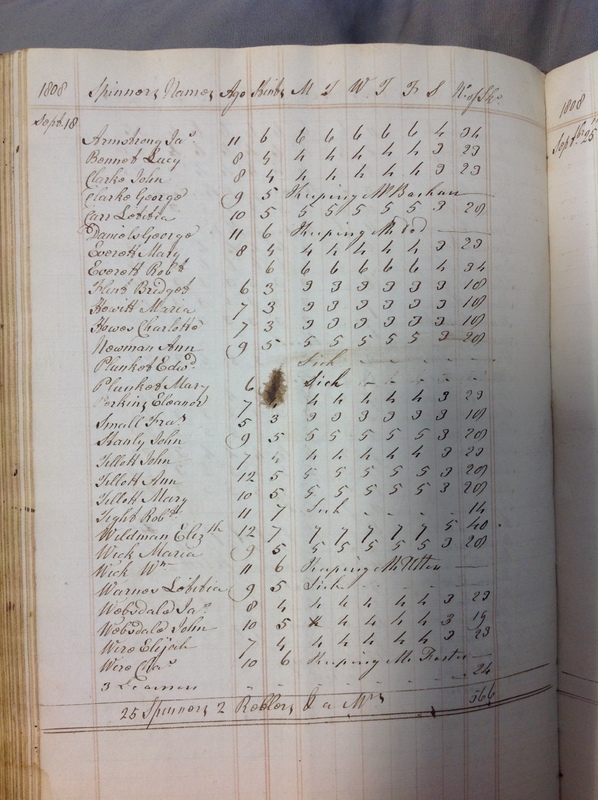 1808 Spinners Names Age Stint M T W T F S No of Sks
Septr 18
Armstrong Jas 11 6 6 6 6 6 6 4 34
Bennet Lucy 8 4 4 4 4 4 4 3 23
Clarke John 8 4 4 4 4 4 4 3 23
Clarke George 9 5 Keeping Mr
Carr Letitia 10 5 5 5 5 5 5 3 28
Daniels George 11 6 Keeping Mr
Everett Mary 8 4 4 4 4 4 4 3 23
Everett Robt 6 6 6 6 6 6 4 34
Flint Bridget 6 3 3 3 3 3 3 3 18
Howitt Maria 7 3 3 3 3 3 3 3 18
Howes Charlotte 7 3 3 3 3 3 3 3 18
Newman Ann 9 5 5 5 5 5 5 3 28
Plunket Edwd Sick
Plunket Mary 6 Sick
Perkins Eleanor 7 4 4 4 4 4 4 3 23
Small Fras 5 3 3 3 3 3 3 3 18
Stanly John 9 5 5 5 5 5 5 3 28
Tillott John 7 4 4 4 4 4 4 3 23
Tillott Ann 12 5 5 5 5 5 5 3 28
Tillott Mary 10 5 5 5 5 5 5 3 28
Tight Robt 11 7 Sick 14
Wildman Elizth 12 7 7 7 7 7 7 5 40
Wick Maria 9 5 5 5 5 5 5 3 28
Wick Wm 11 6 Keeping Mr
Warnes Letitia 9 5 Sick
Websdale Jas 8 4 4 4 4 4 4 3 23
Websdale John 10 5 4 4 4 4 3 19
Were Elijah 7 4 4 4 4 4 4 3 23
Were Chas 10 6 Keeping Mr Foster
3 Learners 24
25 Spinners 2 Reelers & a Mrs 566
1808
Septr 25